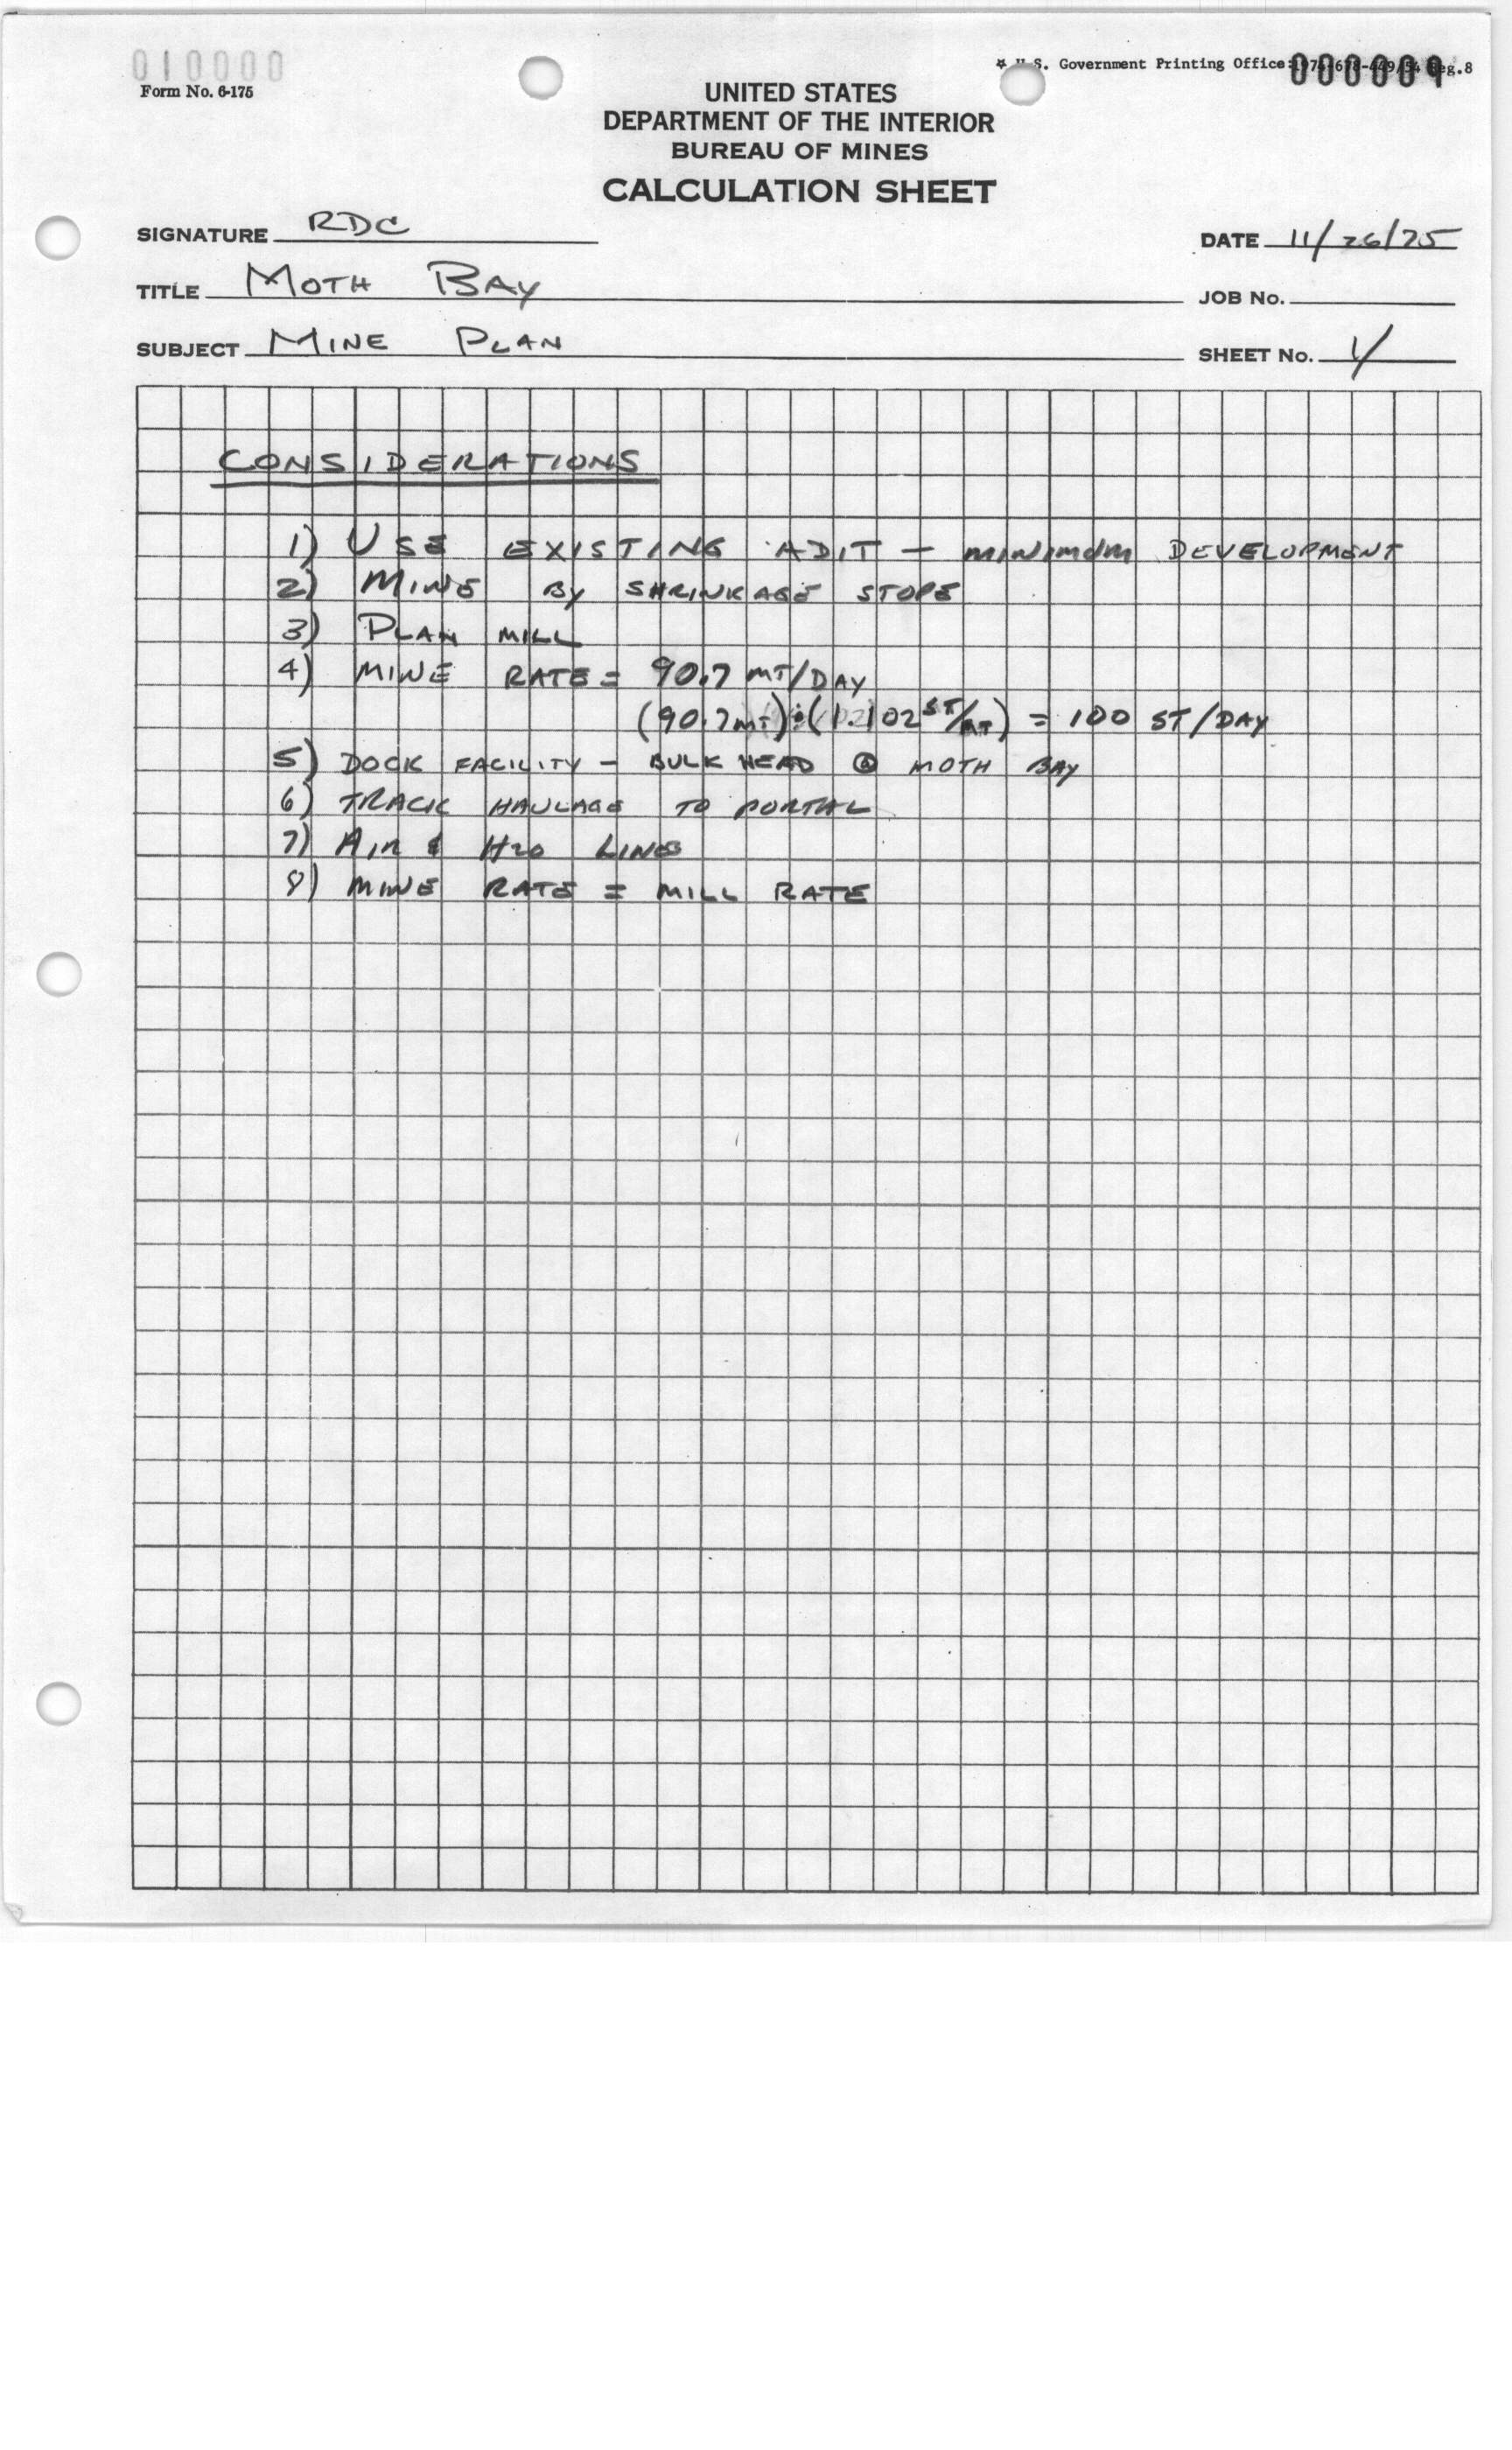 010000
Form No. 6-175
U.S. Government Printing Office: 000001 Reg.8
UNITED STATES
DEPARTMENT OF THE INTERIOR
BUREAU OF MINES
CALCULATION SHEET
SIGNATURE RDC
DATE 11/26/75
TITLE MOTH BAY
JOB No.
SUBJECT MINE PLAN
SHEET No. 1/
CONSIDERATIONS
1) USE EXISTING ADIT - MINIMUM DEVELOPMENT
2) MINE BY SHRINKAGE STOPE
3) PLAN MILL
4) MINE RATE = 90.7 MT/DAY
(90.7 MT) (1.102 ST/MT) = 100 ST/DAY
5) DOCK FACILITY - BULK HEAD @ MOTH BAY
6) TRACK HAULAGE TO PORTAL
7) AIR & H2O LINES
8) MINE RATE = MILL RATE